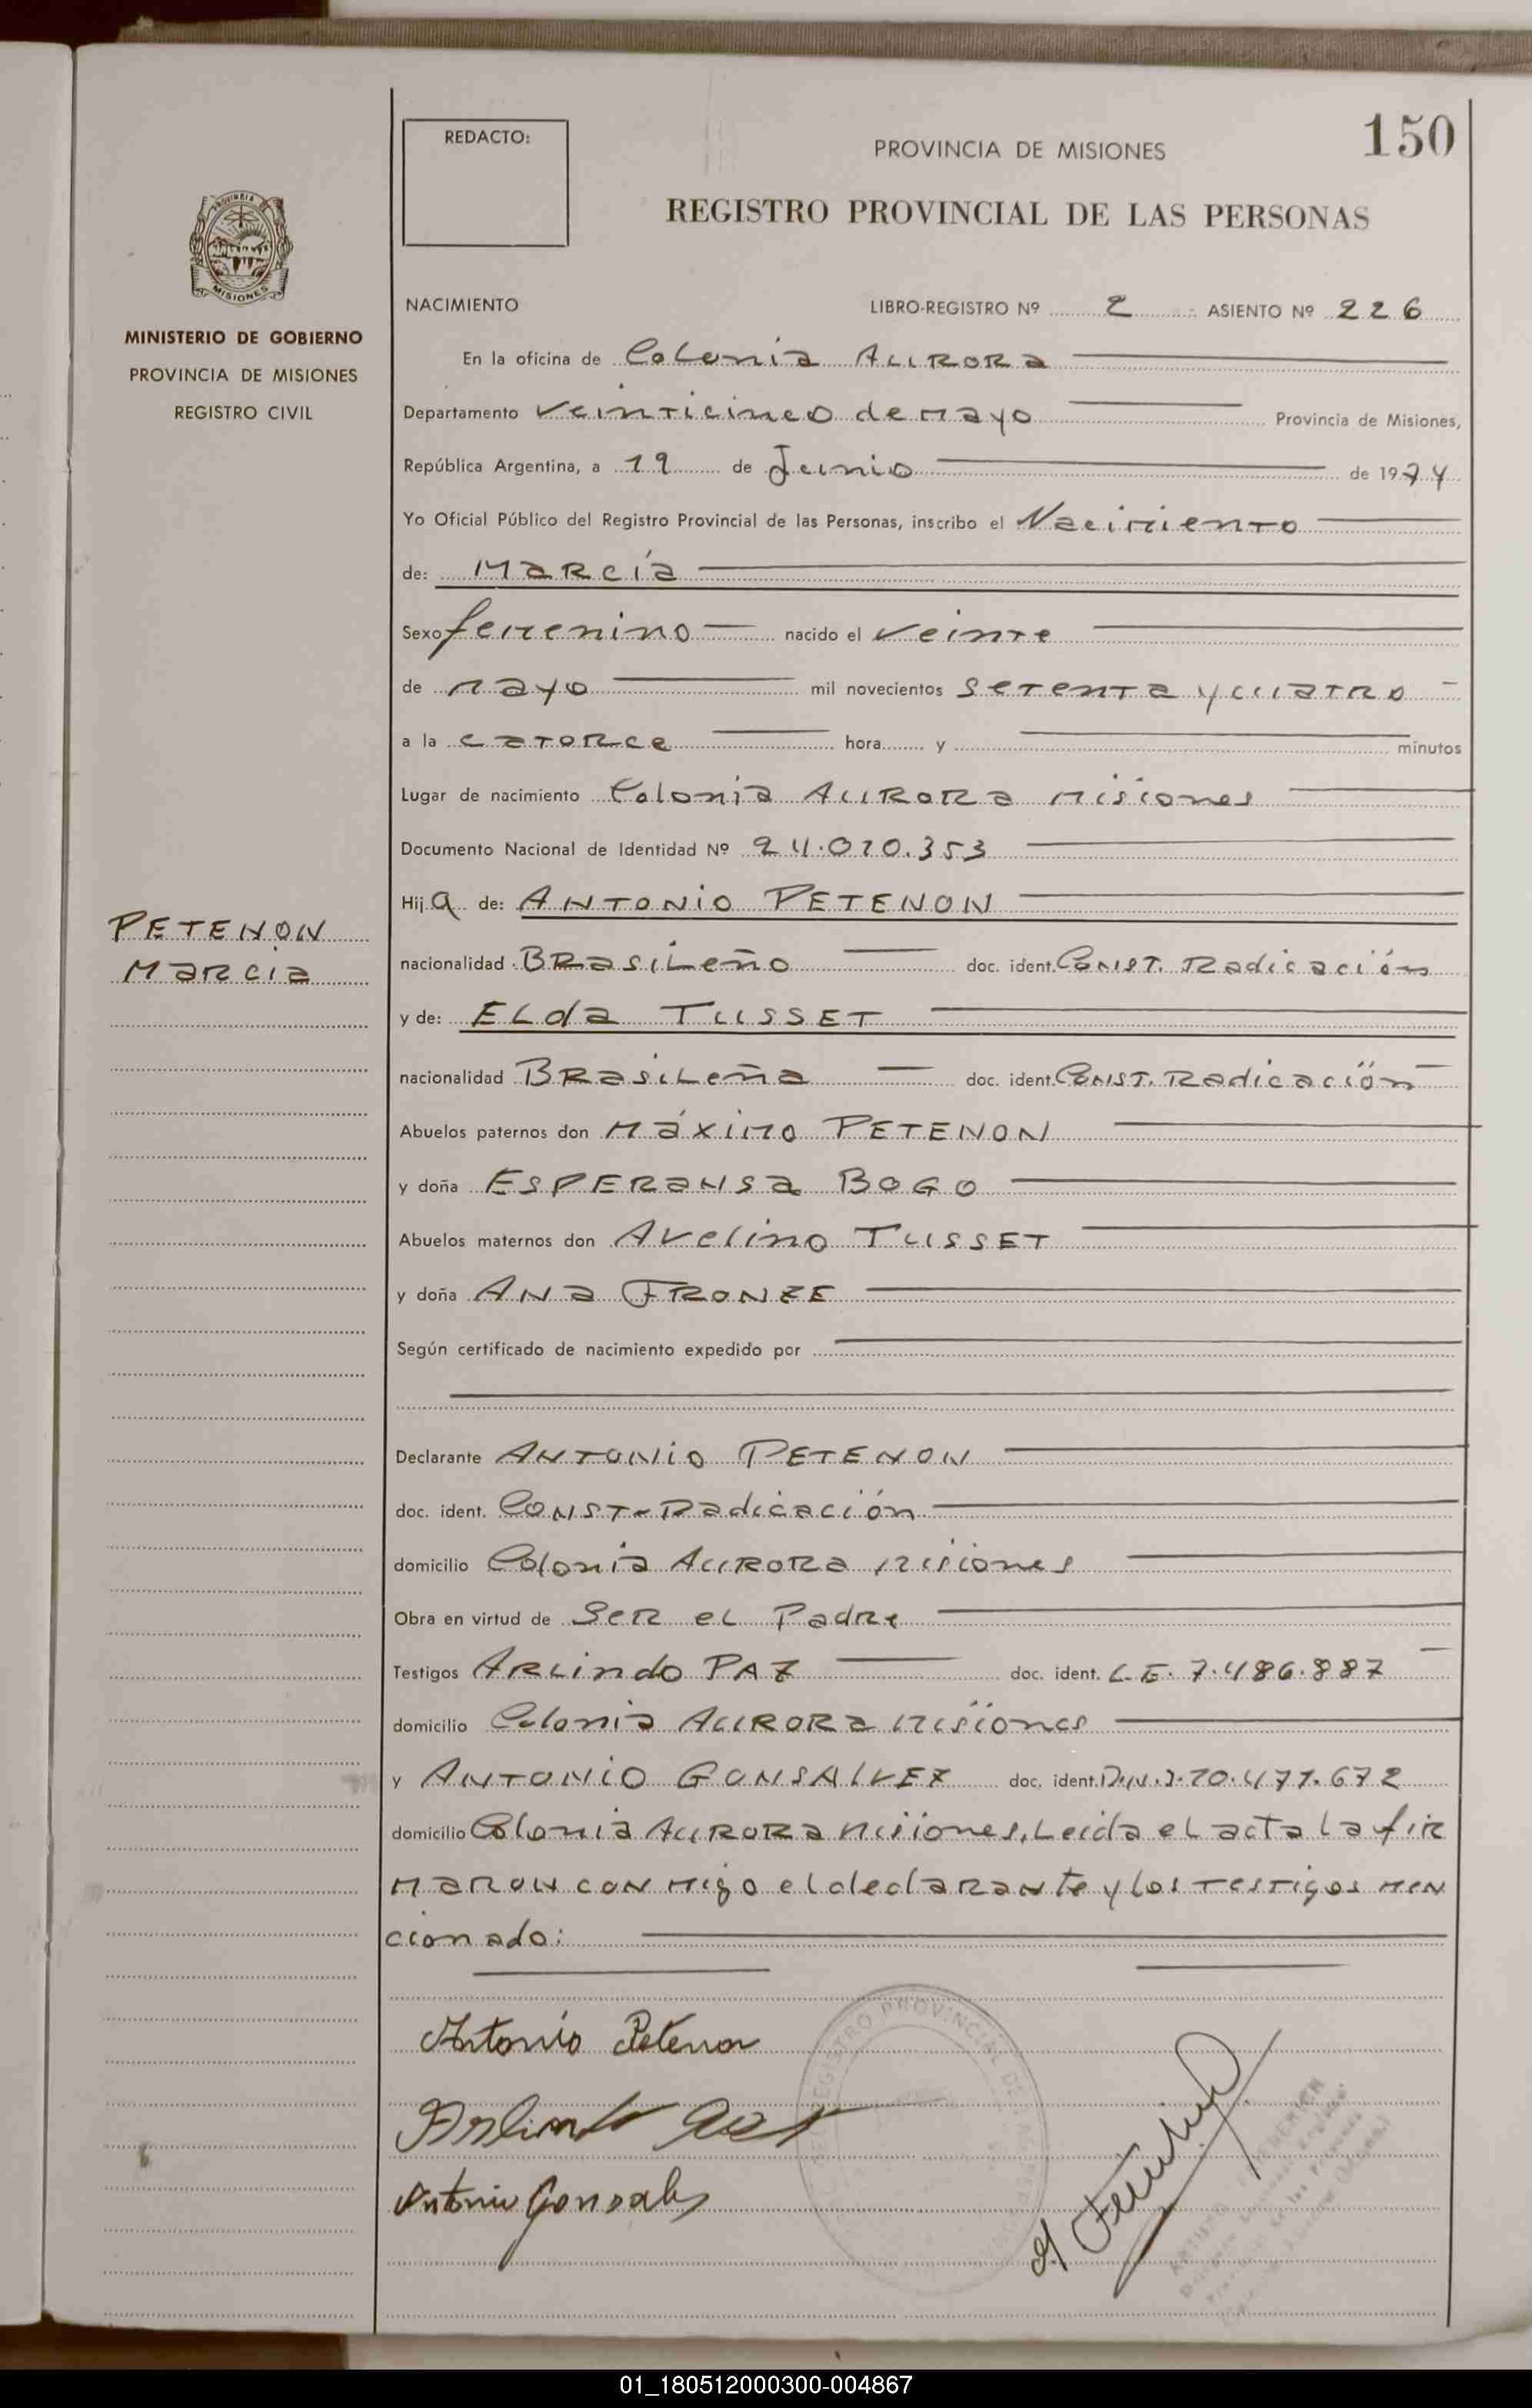 150
REDACTO:
PROVINCIA DE MISIONES
REGISTRO PROVINCIAL DE LAS PERSONAS
MISIONES
MINISTERIO DE GOBIERNO
PROVINCIA DE MISIONES
REGISTRO CIVIL
NACIMIENTO LIBRO-REGISTRO Nº 2 ASIENTO Nº 226
En la oficina de Colonia AURORA
Departamento Veinticinco de Mayo Provincia de Misiones,
República Argentina, a 19 de Junio de 1974
Yo Oficial Público del Registro Provincial de las Personas, inscribo el Nacimiento
de: MARCÍA
Sexo femenino nacido el veinte
de mayo mil novecientos setenta y cuatro
a la catorce hora y minutos
Lugar de nacimiento Colonia AURORA Misiones
Documento Nacional de Identidad Nº 24.010.353
Hija de: ANTONIO PETENON
PETENON
MARCIA
nacionalidad BRasiLeño doc. ident. CONST. Radicación
y de: ELda TUSSET
nacionalidad BRasiLeña doc. ident. CONST. Radicación
Abuelos paternos don Máximo PETENON
y doña ESPERANSA BOGO
Abuelos maternos don Avelino TUSSET
y doña ANA FRONZE
Según certificado de nacimiento expedido por
Declarante ANTONIO PETENON
doc. ident. CONST-Radicación
domicilio Colonia AURORA Misiones
Obra en virtud de SER el Padre
Testigos ARLindo PAZ doc. ident. L.E. 7.486.887
domicilio Colonia AURORA Misiones
y ANTONIO GONSALVEZ doc. ident. D.N.I. 10.477.672
domicilio Colonia AURORA Misiones. Leida el acta la fir
maron con migo el declarante y los testigos men
cionado:
Antonio Petenon
Arlindo Paz
Antonio Gonsales
REGISTRO PROVINCIAL DE LAS
01_180512000300-004867